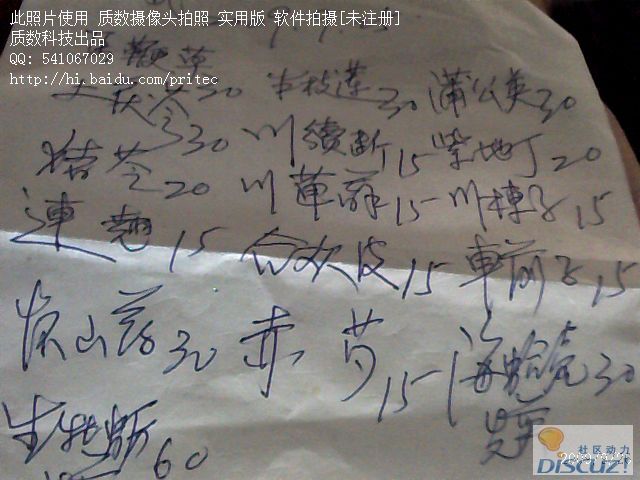 此照片使用 质数摄像头拍照 实用版 软件拍摄[未注册]
质数科技出品
QQ: 541067029
http://hi.baidu.com/pritec
土茯苓30 半枝莲30 蒲公英30
猪苓20 川續断15 紫地丁20
連翘15 川萆薢15 川楝子15
合欢皮15 車前子15
淮山药30 赤芍15 海蛤壳30
生牡蛎60
社区动力
DISCUZ!